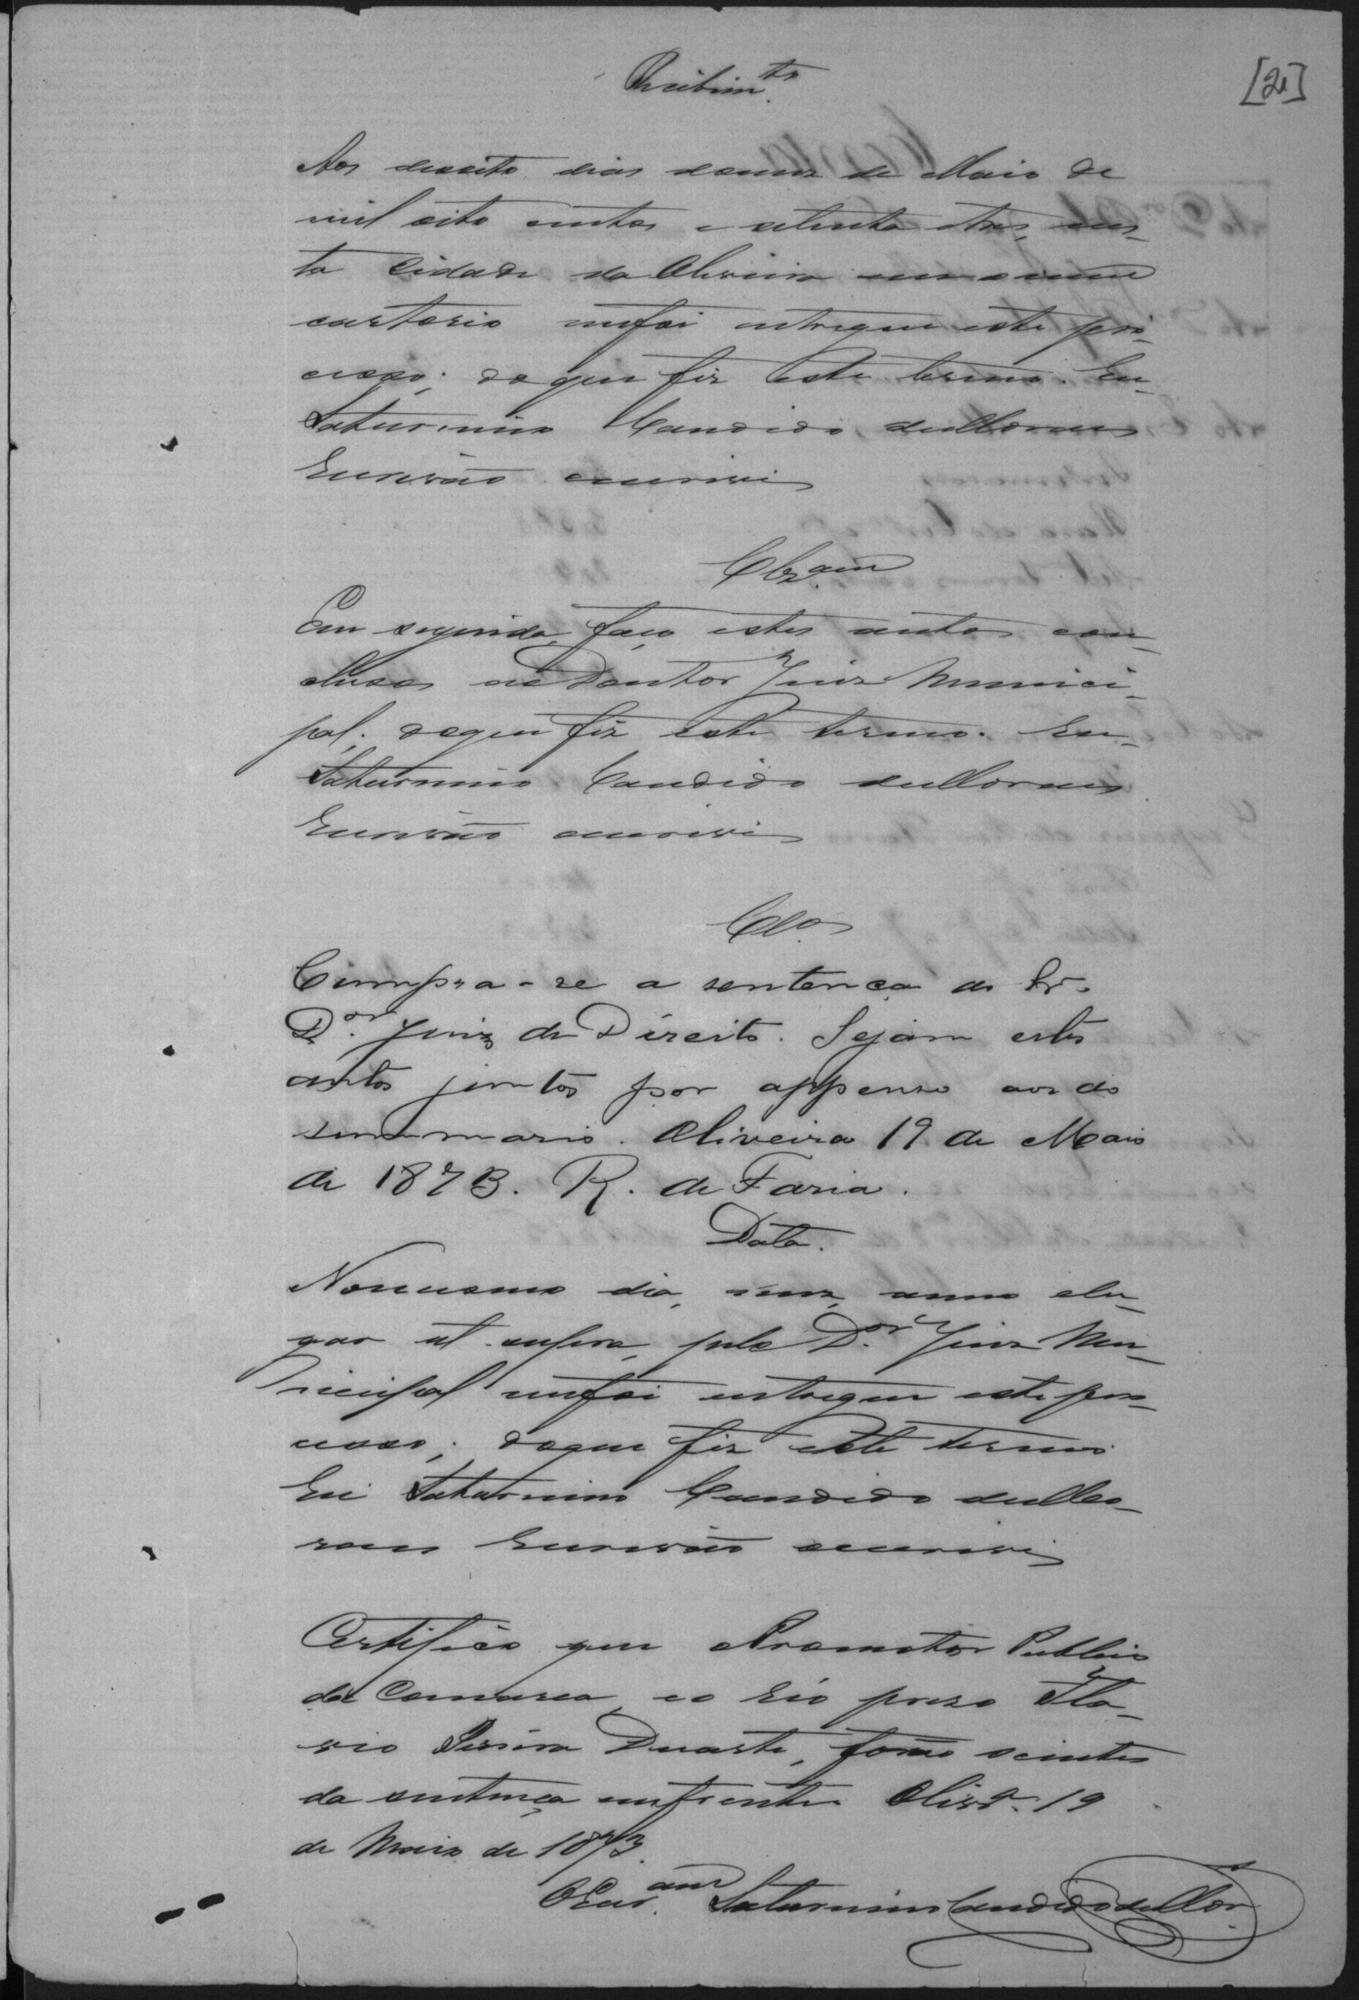 [21]
Recebim.to
Aos desoito dias do mez de Maio de
mil oito centos e setenta e tres, nes-
ta Cidade da Oliveira em o meu
cartorio me foi entregue este pro-
cesso; do que fiz este termo. Eu
Saturnino Candido de Moraes
Escrivão escrevi
Clz.am
Em seguida, faço estes autos con-
clusos ao Doutor Juiz Munici-
pal; do que fiz este termo. Eu
Saturnino Candido de Moraes
Escrivão escrevi
Clos
Cumpra-se a sentença do Sr.
D.or Juiz de Direito. Sejam estes
autos juntos por appenso aos do
summario. Oliveira 19 de Maio
de 1873. R. de Faria.
Data.
No mesmo dia, mez, anno e lu-
gar ut supra, pelo D.or Juiz Mu-
nicipal me foi entregue este pro-
cesso; do que fiz este termo.
Eu Saturnino Candido de Mo-
raes Escrivão escrevi
Certifico que o Promotor Publico
da Comarca, e o réo prezo Fla-
vio Pereira Duarte, forão scientes
da sentença em frente. Olivr.a 19
de Maio de 1873.
O Escr.am Saturnino Candido de Mor.